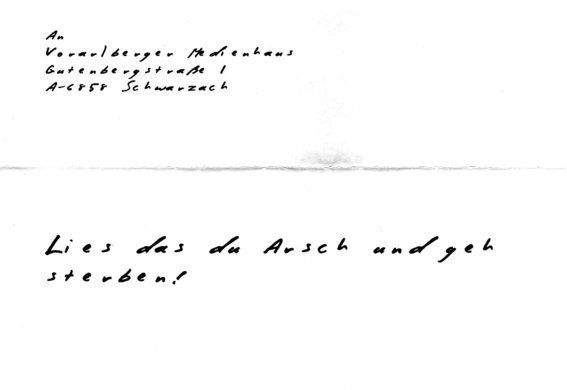 An
Vorarlberger Medienhaus
Gutenbergstraße 1
A-6858 Schwarzach
Lies das du Arsch und geh
sterben!